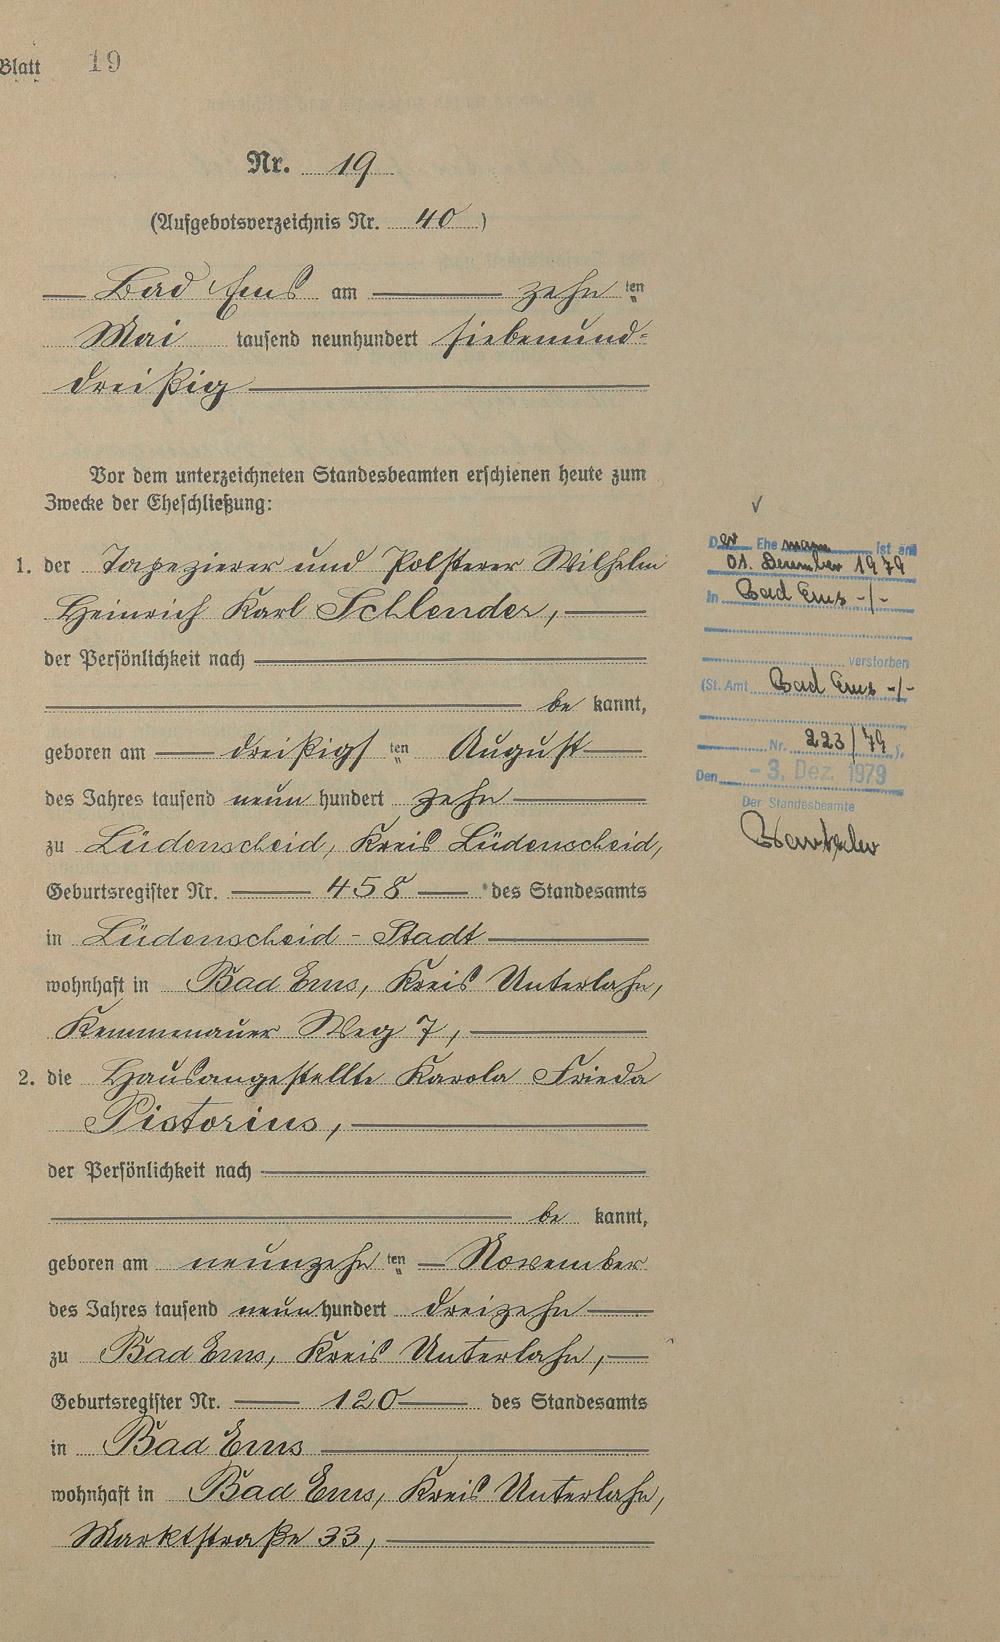 Blatt 19
Nr. 19
(Aufgebotsverzeichnis Nr. 40)
Bad Ems am zehn ten
Mai tausend neunhundert siebenund-
dreißig
Vor dem unterzeichneten Standesbeamten erschienen heute zum
Zwecke der Eheschließung:
1. der Tapezierer und Polsterer Wilhelm
Heinrich Karl Schlender,
der Persönlichkeit nach
be kannt,
geboren am dreißigs ten August
des Jahres tausend neun hundert zehn
zu Lüdenscheid, Kreis Lüdenscheid,
Geburtsregister Nr. 458 des Standesamts
in Lüdenscheid - Stadt
wohnhaft in Bad Ems, Kreis Unterlahn,
Kemmenauer Weg 7,
2. die Hausangestellte Karola Frieda
Pistorius,
der Persönlichkeit nach
be kannt,
geboren am neunzehn ten November
des Jahres tausend neun hundert dreizehn
zu Bad Ems, Kreis Unterlahn,
Geburtsregister Nr. 120 des Standesamts
in Bad Ems
wohnhaft in Bad Ems, Kreis Unterlahn,
Marktstraße 33,
Der Ehemann ist am
01. Dezember 1979
in Bad Ems -/-
verstorben
(St. Amt Bad Ems -/-
Nr. 223/79).
Den -3. Dez. 1979
Der Standesbeamte